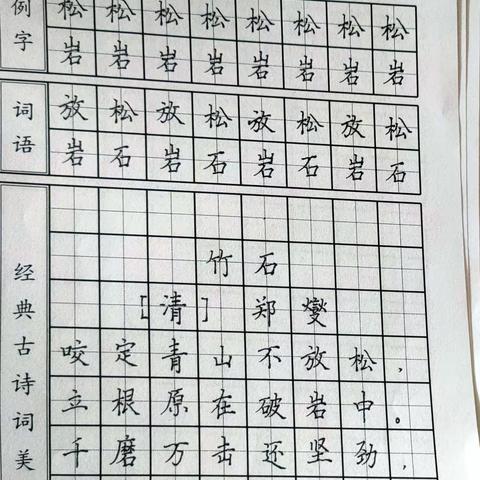 例字
松松松松松松松松
岩岩岩岩岩岩岩岩
词语
放松放松放松放松
岩石岩石岩石岩石
经典古诗词美
竹石
[清] 郑燮
咬定青山不放松,
立根原在破岩中。
千磨万击还坚劲,